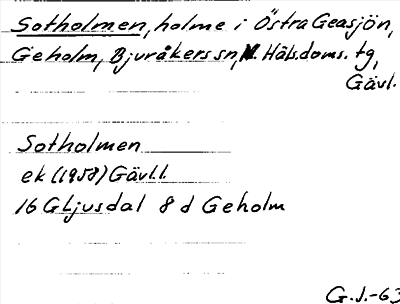 Sotholmen, holme i Östra Geasjön,
Geholm, Bjuråkers sn, N. Häls. doms. tg,
Gävl.
Sotholmen
ek (1958) Gävl.l.
16 G Ljusdal 8 d Geholm
G.J.-63